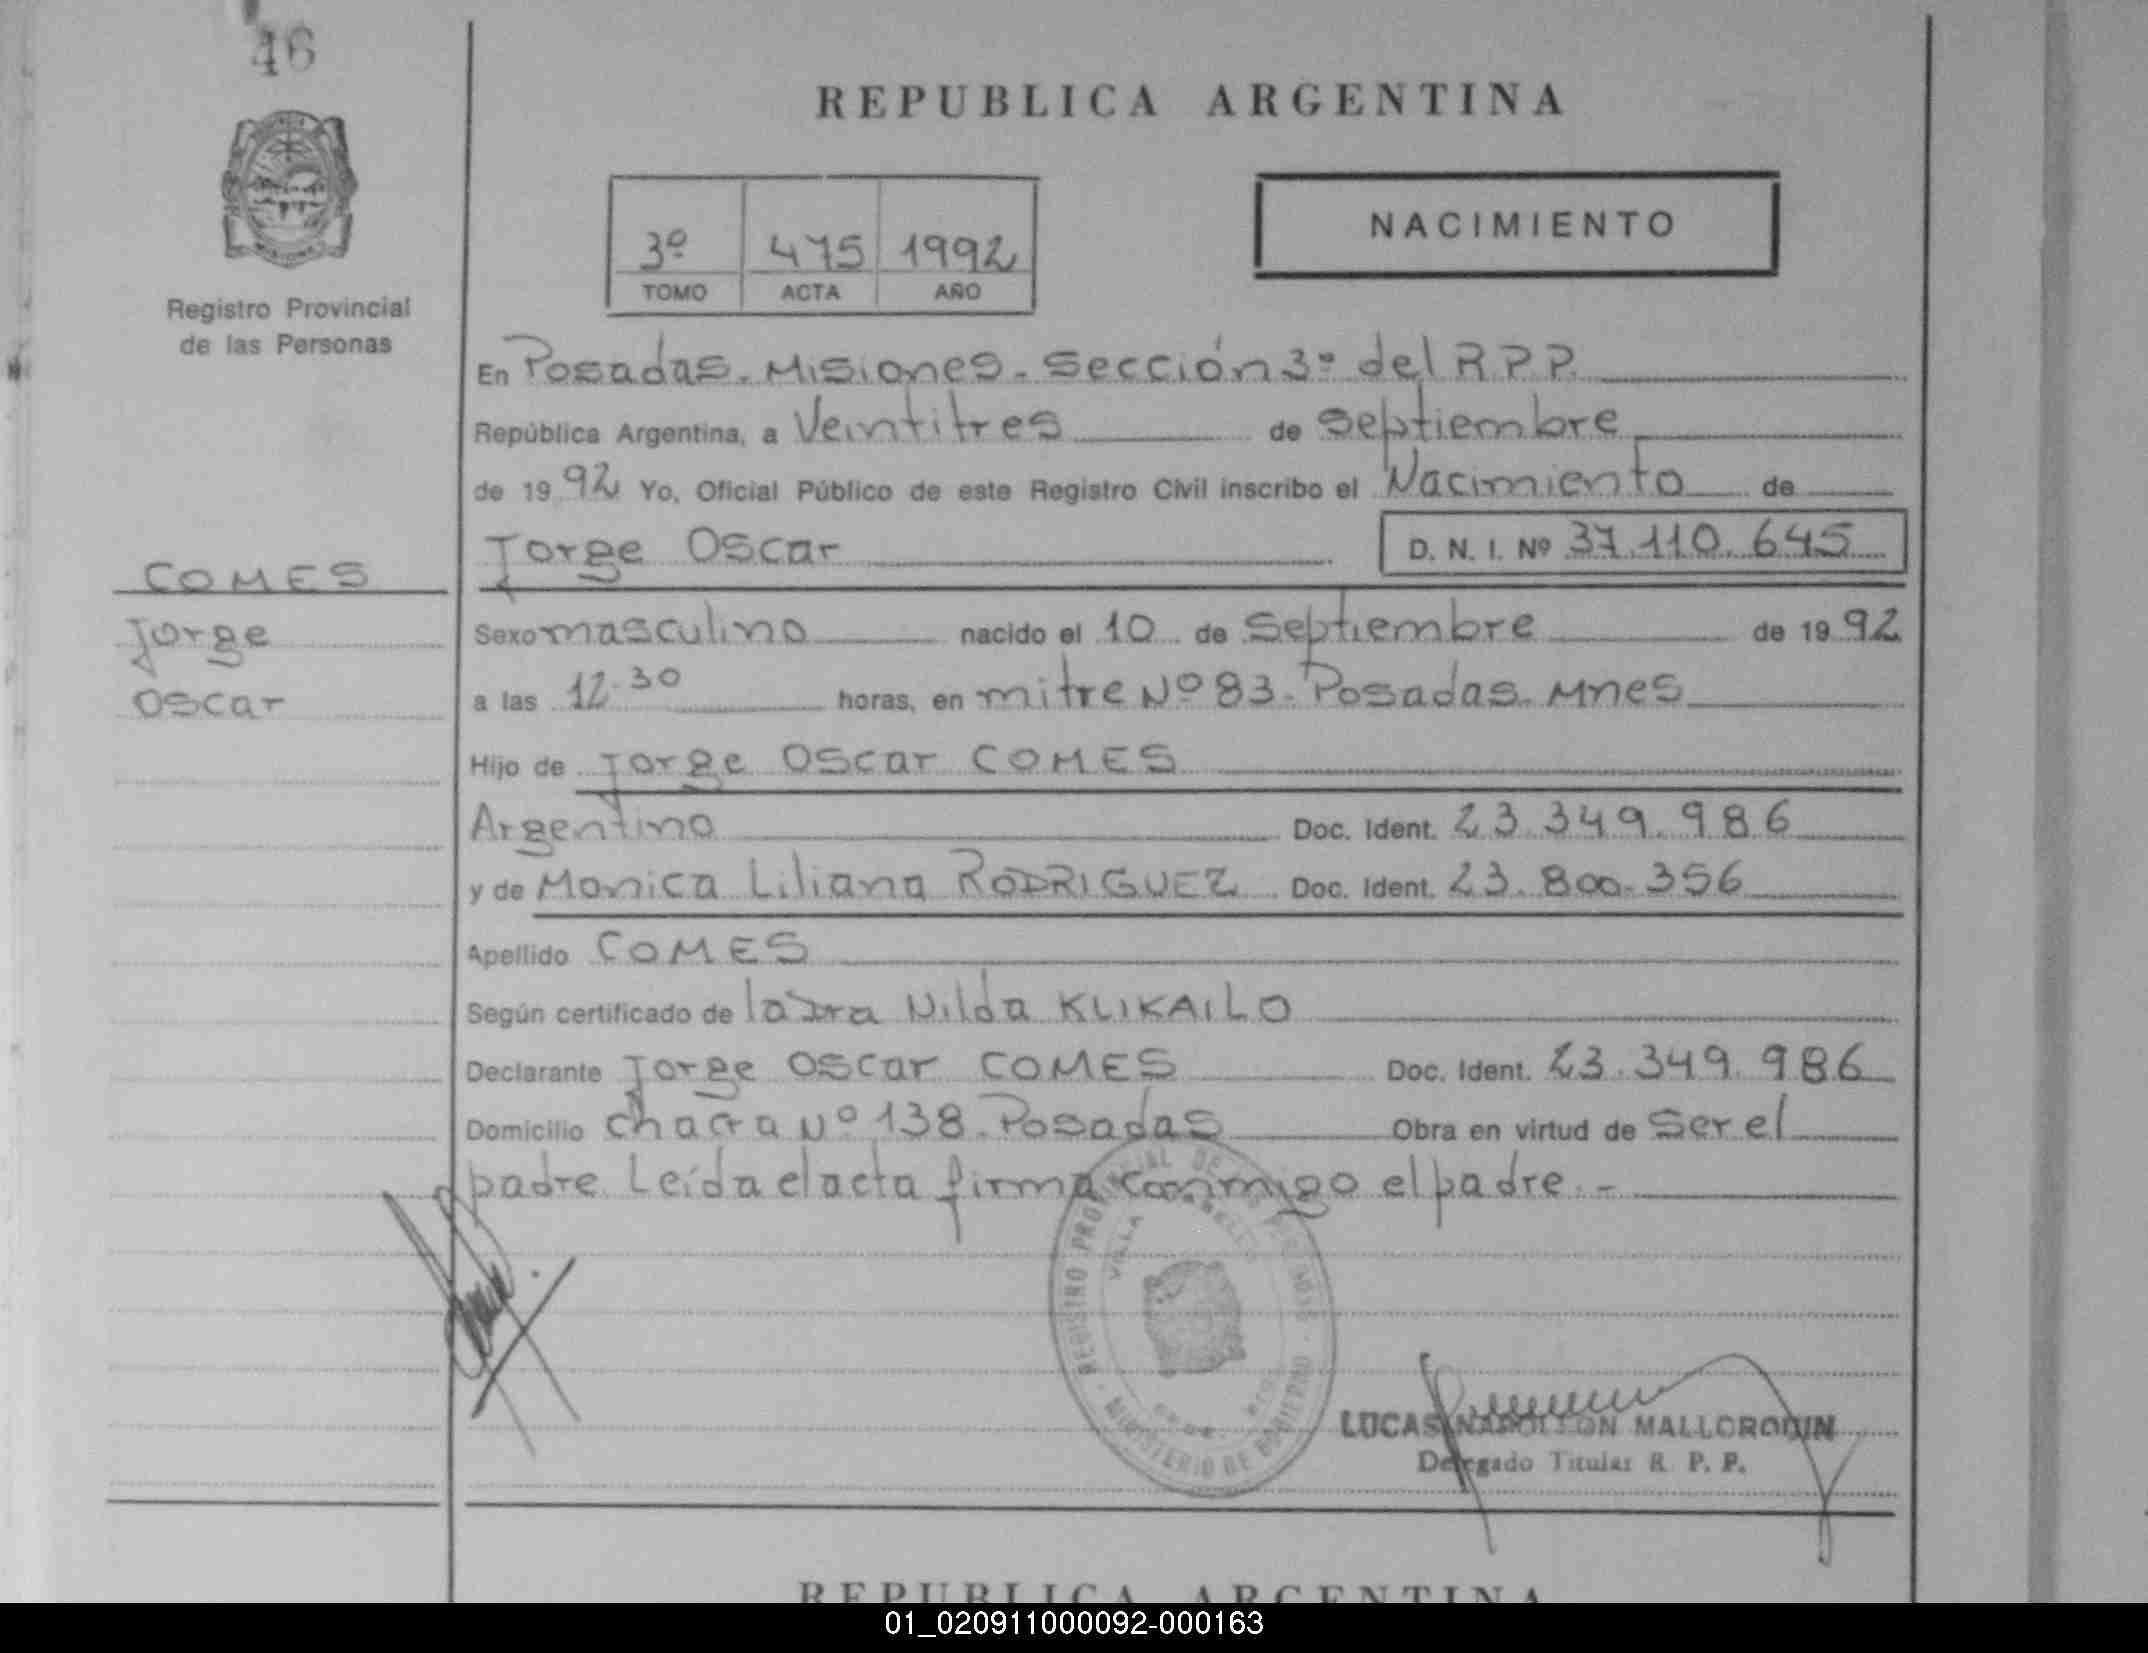 46
REPUBLICA ARGENTINA
NACIMIENTO
3º 475 1992
TOMO ACTA AÑO
Registro Provincial
de las Personas
En Posadas. Misiones. Sección 3º del R.P.P.
República Argentina, a Veintitres de septiembre
de 1992 Yo, Oficial Público de este Registro Civil inscribo el Nacimiento de
Jorge Oscar D. N. I. Nº 37.110.645
COMES
Jorge
Oscar
Sexo masculino nacido el 10 de Septiembre de 1992
a las 12.30 horas, en mitre Nº 83. Posadas. Mnes
Hijo de Jorge Oscar COMES
Argentino Doc. Ident. 23.349.986
y de Monica Liliana RODRIGUEZ Doc. Ident. 23.800.356
Apellido COMES
Según certificado de la Dra Nilda KLIKAILO
Declarante Jorge Oscar COMES Doc. Ident. 23.349.986
Domicilio chacra Nº 138. Posadas Obra en virtud de Ser el
padre. Leída el acta firma conmigo el padre.-
REGISTRO PROVINCIAL DE LAS PERSONAS
VILLA CABELLO
MINISTERIO DE GOBIERNO
LUCAS NAPOLEON MALLORQUIN
Delegado Titular R. P. P.
REPUBLICA ARGENTINA
01_020911000092-000163